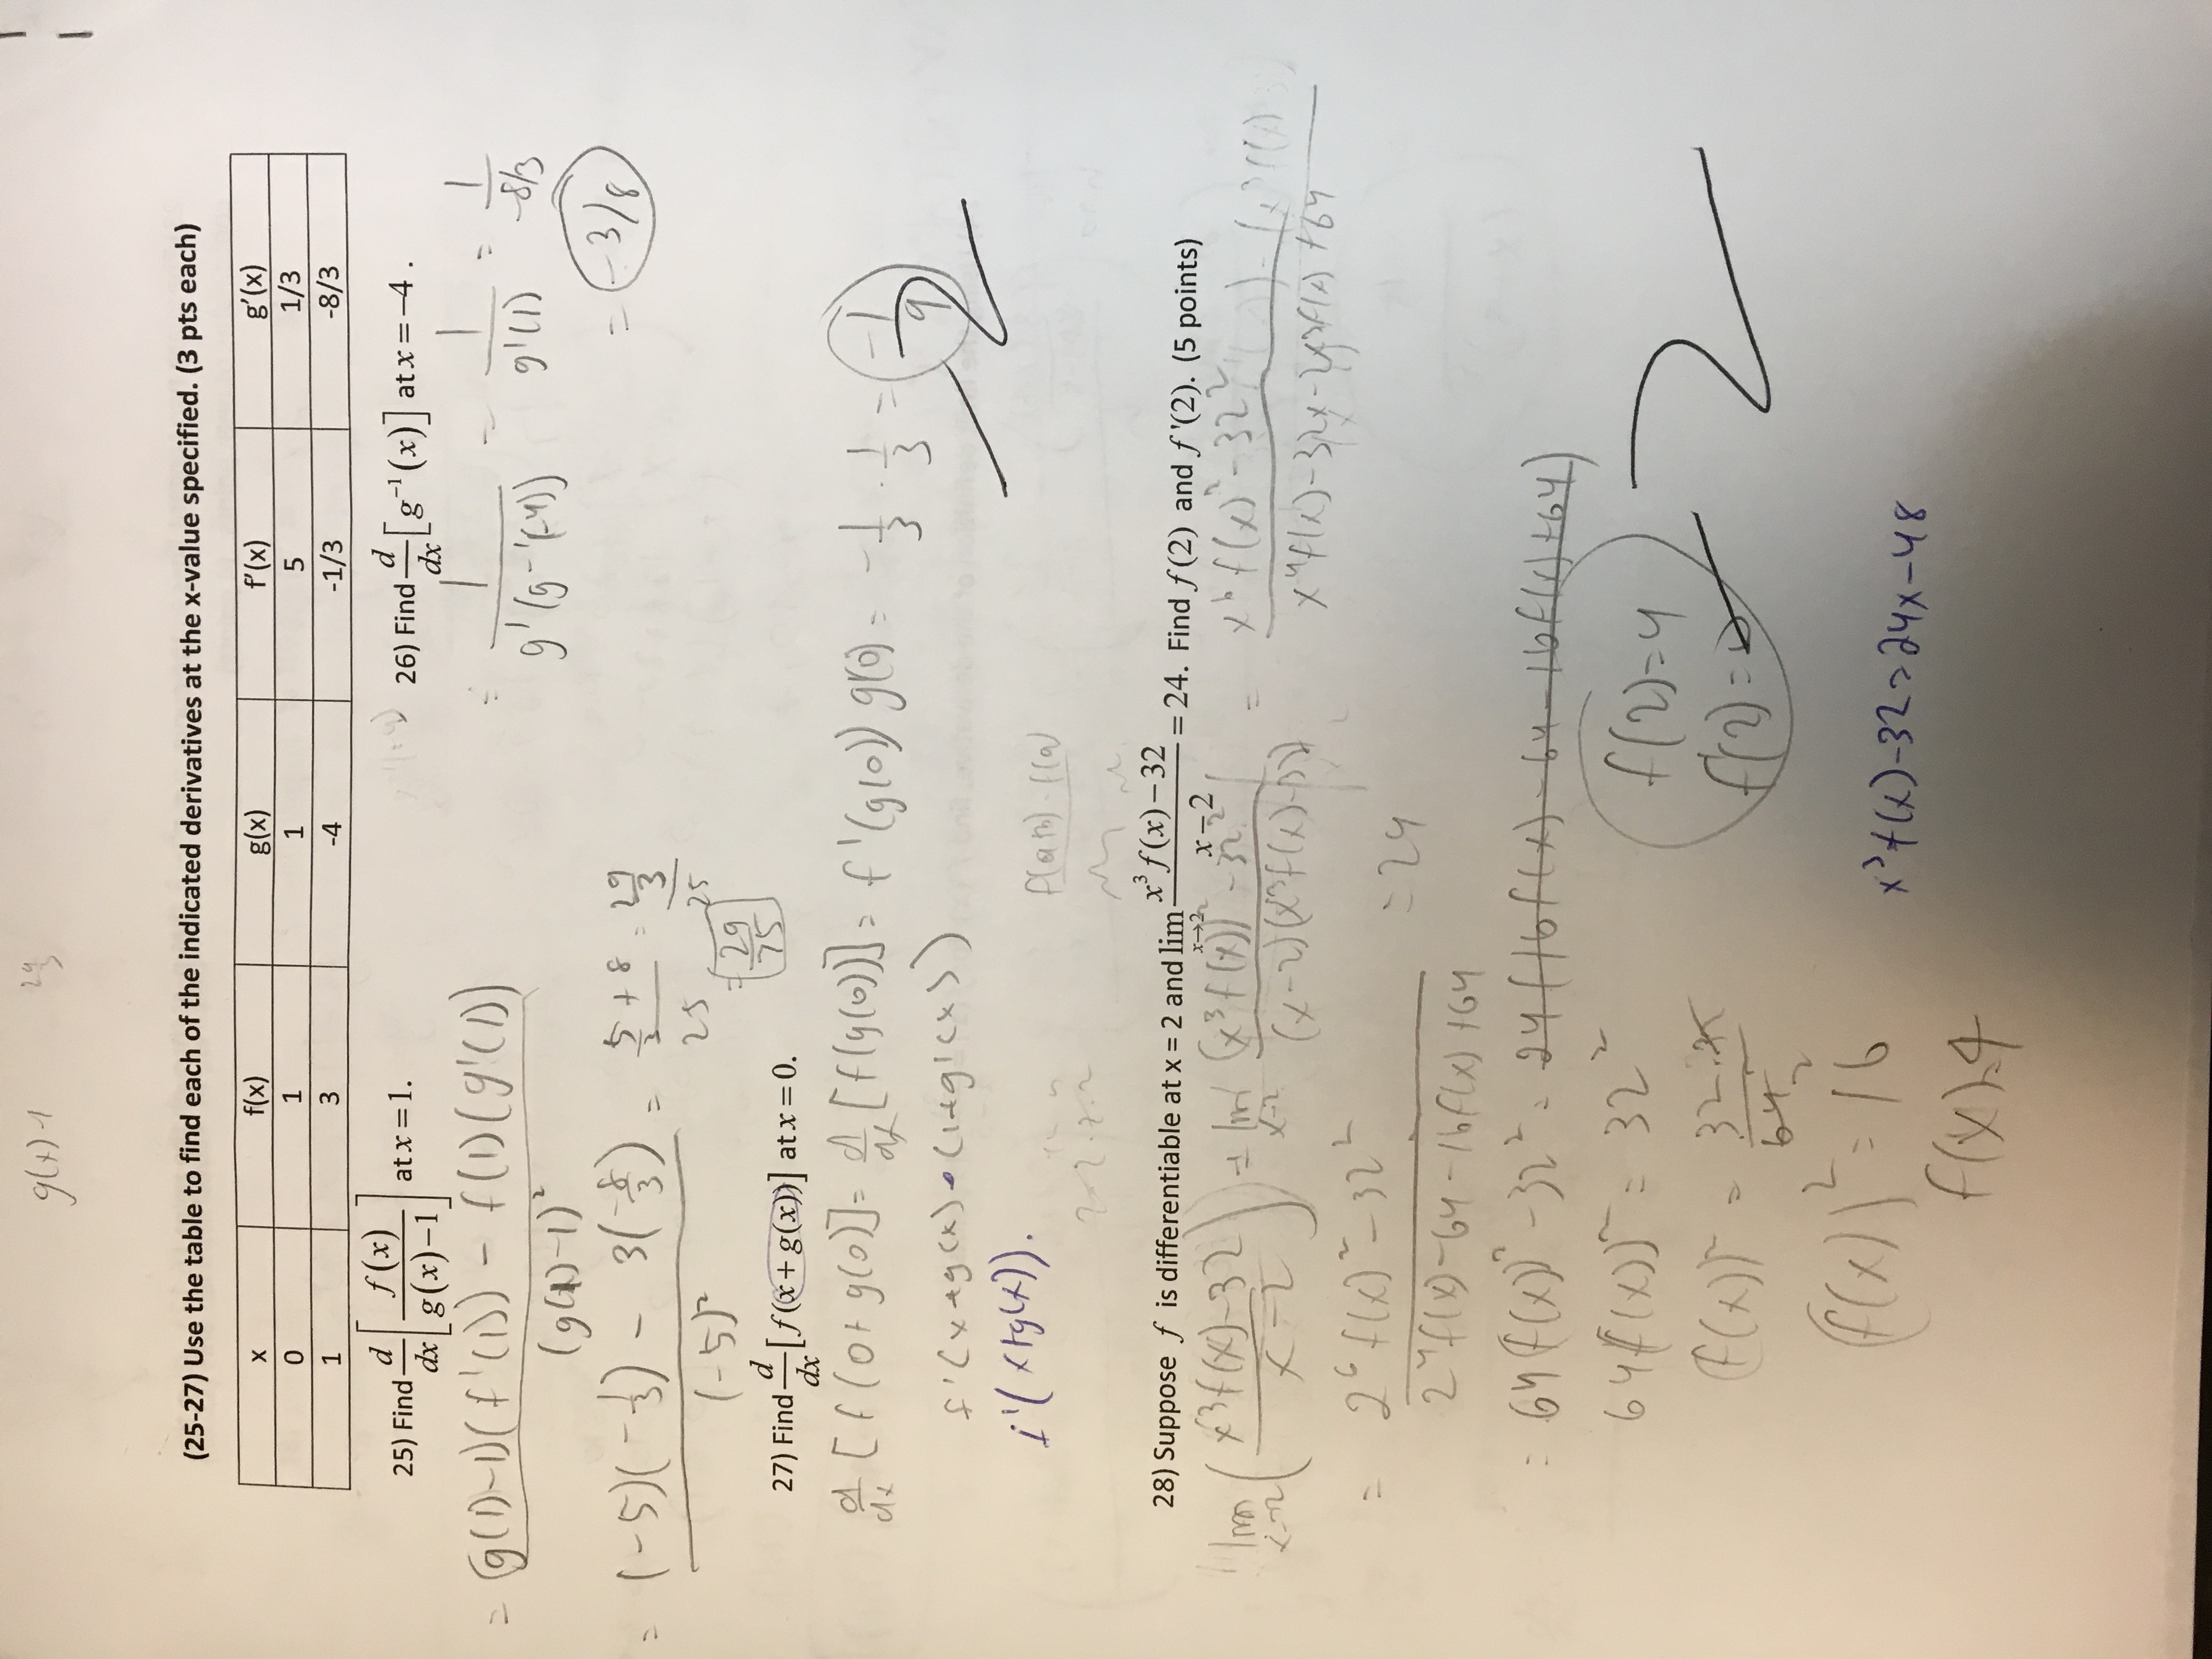 g(x)-1 29/3
(25-27) Use the table to find each of the indicated derivatives at the x-value specified. (3 pts each)
x f(x) g(x) f'(x) g'(x)
0 1 1 5 1/3
1 3 -4 -1/3 -8/3
25) Find d/dx [f(x)/(g(x)-1)] at x = 1.
26) Find d/dx [g⁻¹(x)] at x = -4 .
= (g(1)-1)(f'(1)) - f(1)(g'(1)) / (g(1)-1)²
= 1/g'(g⁻¹(-4)) = 1/g'(1) = 1/(-8/3)
= -3/8
= (-5)(-1/3) - 3(-8/3) / (-5)² = (5/3 + 8)/25 = (29/3)/25
= 29/75
27) Find d/dx [f(x + g(x))] at x = 0.
d/dx [f(0+g(0)] = d/dx [f(g(0))] = f'(g(0)) g(0) = -1/3 · 1/3 = -1/9
-2
f'(x+g(x) • (1+g'(x))
f'(x+g(x)).
f(a+h)-f(a)
28) Suppose f is differentiable at x = 2 and lim x→2 (x³f(x)-32)/(x-2) = 24. Find f(2) and f'(2). (5 points)
lim x→2 ((x³f(x)-32)/(x-2)) = lim x→2 ((x³f(x))² - 32²)/((x-2)(x³f(x)-32)) = (x⁶f(x)² - 32²)/(x⁴f(x)-32x-2x³f(x)+64)
= (2⁶f(x)² - 32²)/(2⁴f(x)-64-16f(x)+64) = 24
= 64(f(x))² - 32² = 24(16f(x)-64-16f(x)+64)
64(f(x))² = 32²
f(2)=4
(f(x))² = 32·32/64
f'(2)=0
-2
(f(x))² = 16
x³f(x)-32=24x-48
f(x)=4